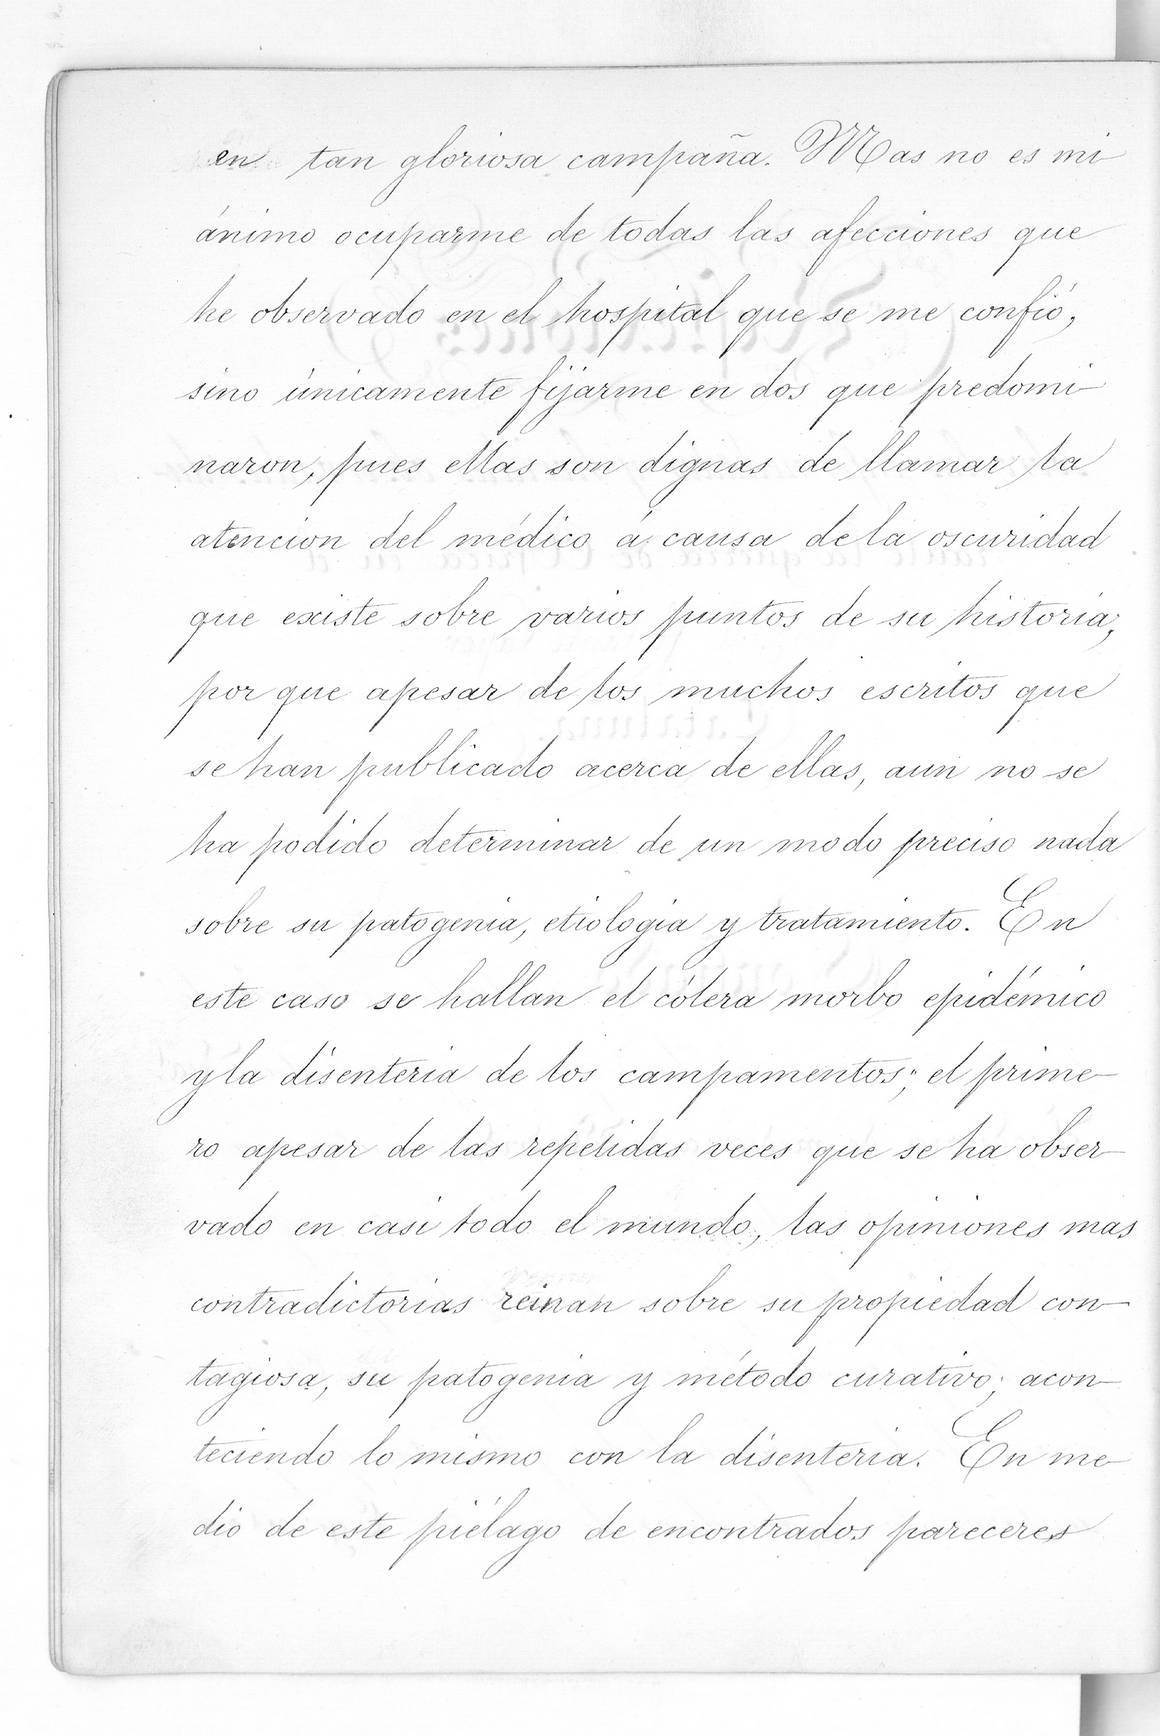 en tan gloriosa campaña. Mas no es mi
ánimo ocuparme de todas las afecciones que
he observado en el hospital que se me confió,
sino únicamente fijarme en dos que predomi-
naron, pues ellas son dignas de llamar la
atencion del médico á causa de la oscuridad
que existe sobre varios puntos de su historia,
por que apesar de los muchos escritos que
se han publicado acerca de ellas, aun no se
ha podido determinar de un modo preciso nada
sobre su patogenia, etiologia y tratamiento. En
este caso se hallan el cólera morbo epidémico
y la disenteria de los campamentos; el prime-
ro apesar de las repetidas veces que se ha obser-
vado en casi todo el mundo, las opiniones mas
contradictorias reinan sobre su propiedad con-
tagiosa, su patogenia y método curativo; acon-
teciendo lo mismo con la disenteria. En me-
dio de este piélago de encontrados pareceres